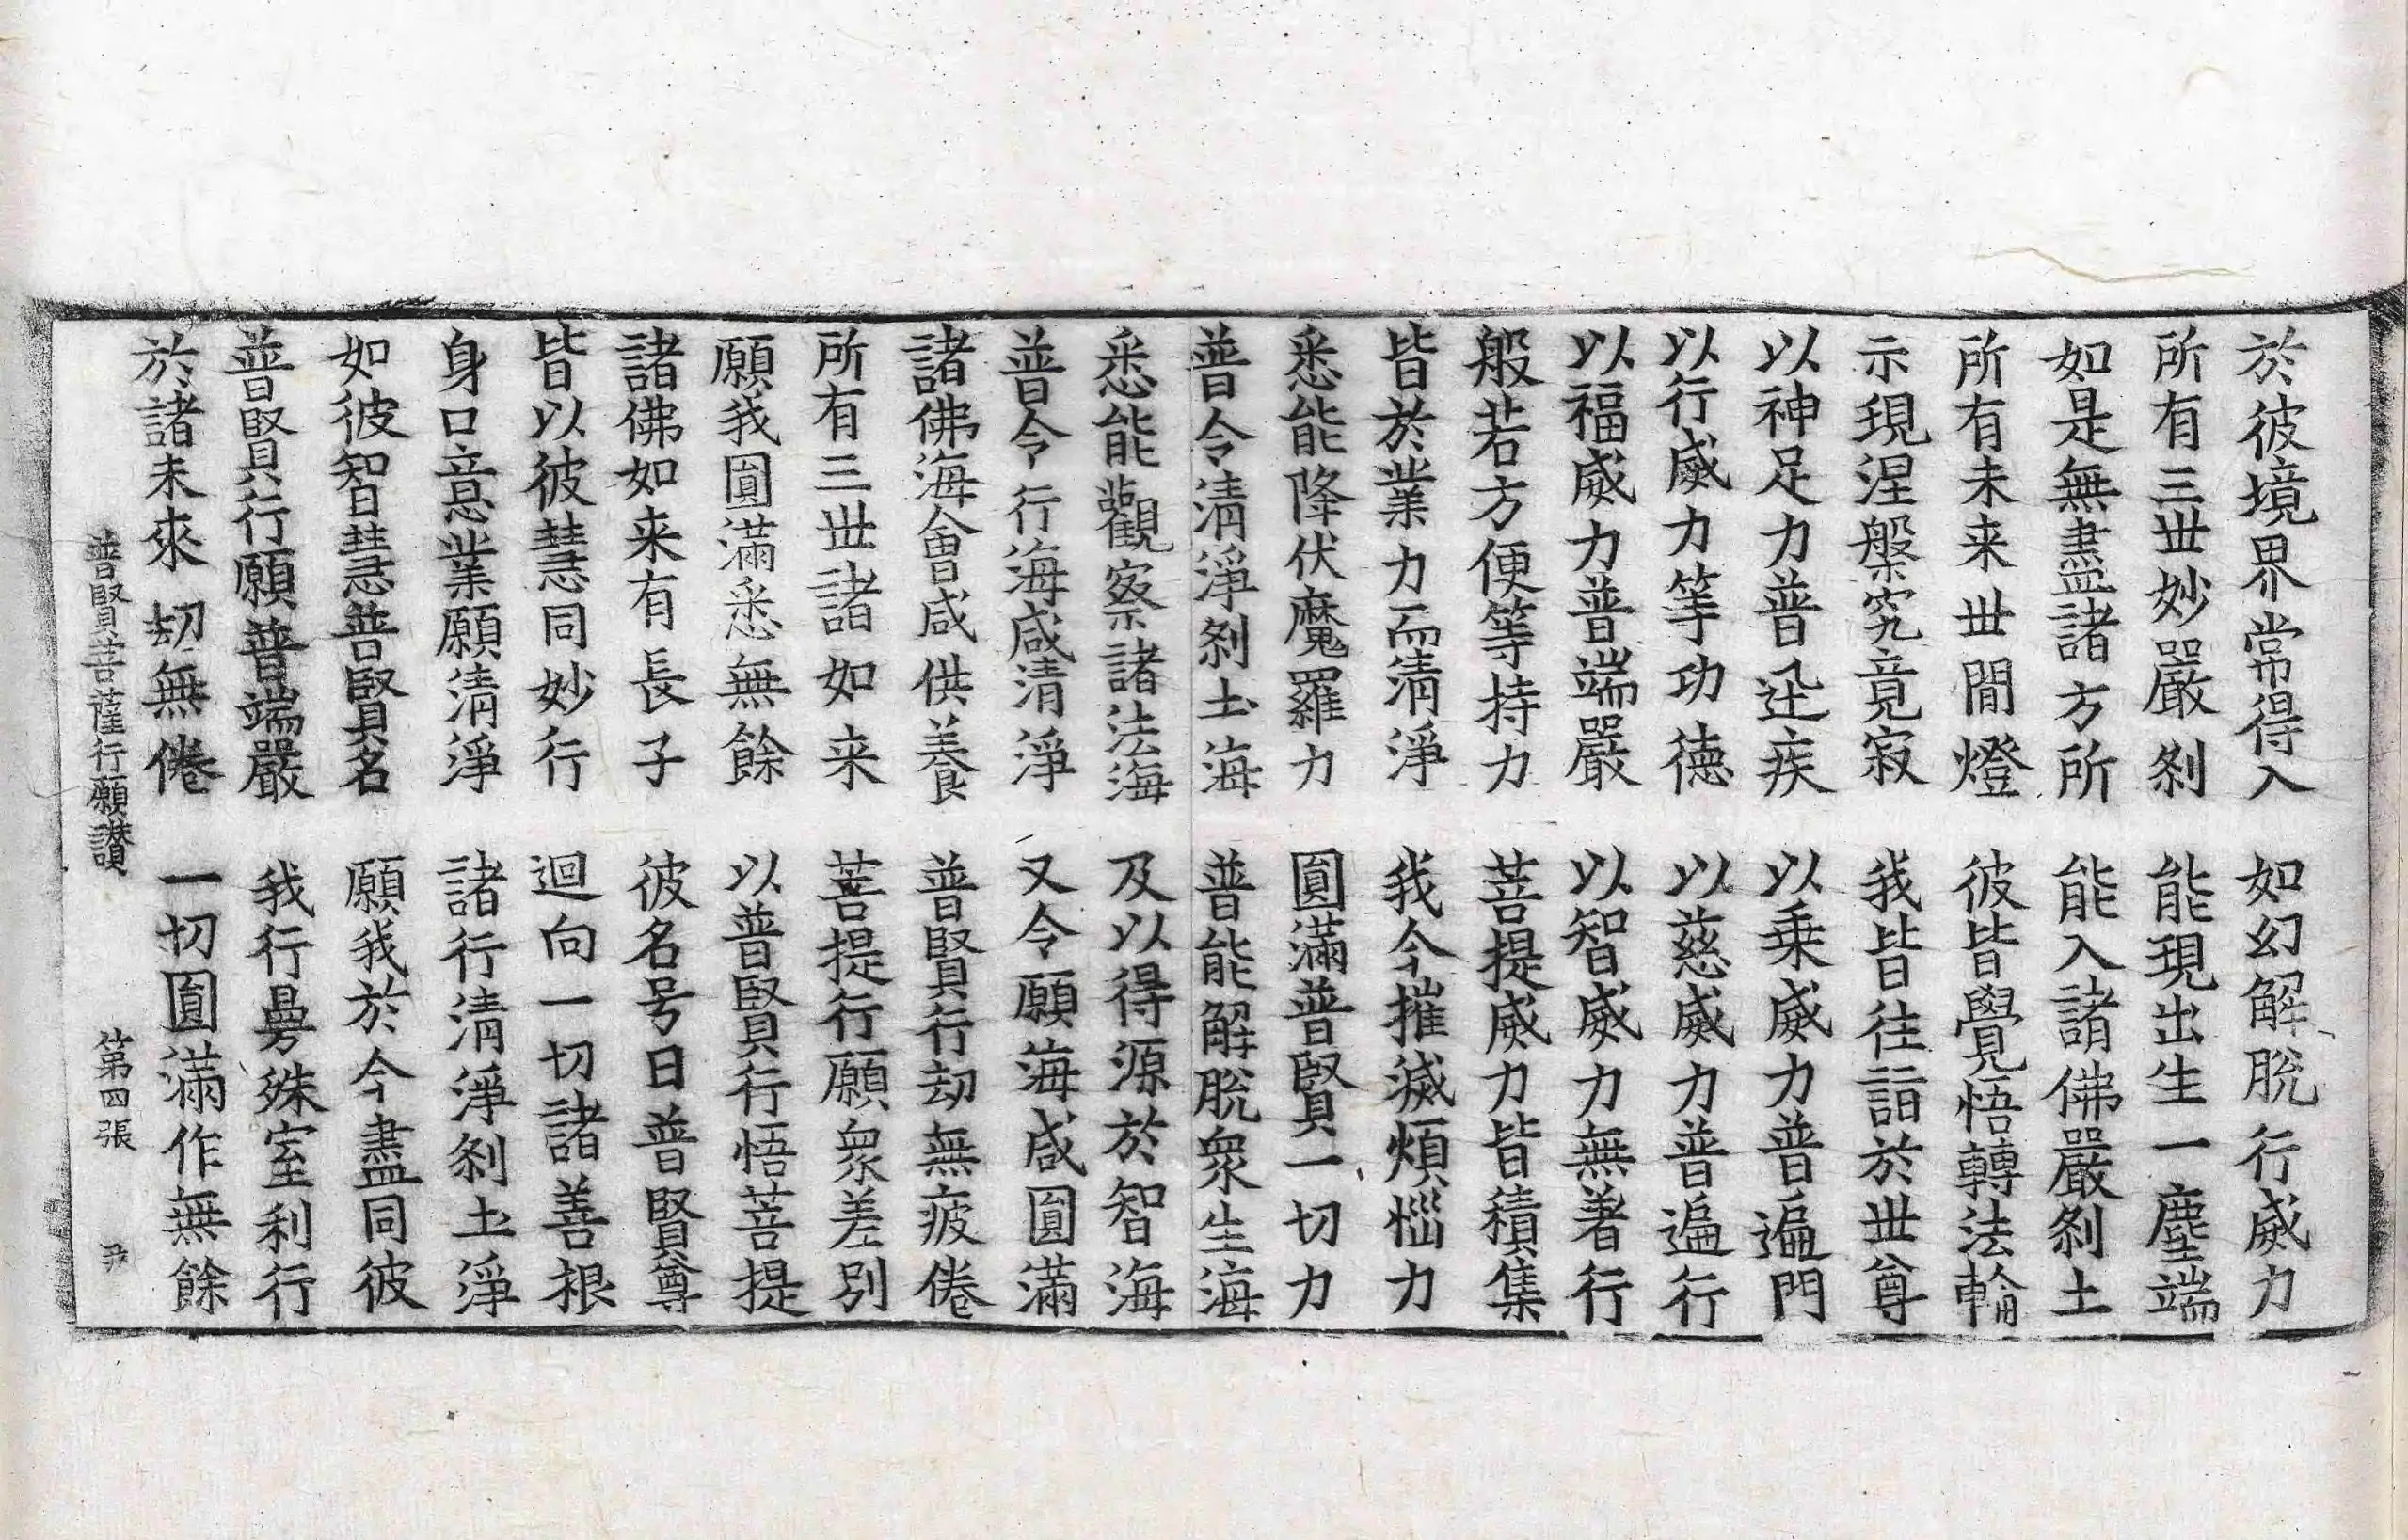 於彼境界常得入 如幻解脫行威力
所有三世妙嚴刹 能現出生一塵端
如是無盡諸方所 能入諸佛嚴刹土
所有未来世間燈 彼皆覺悟轉法輪
示現涅槃究竟寂 我皆往詣於世尊
以神足力普迅疾 以乗威力普遍門
以行威力等功德 以慈威力普遍行
以福威力普端嚴 以智威力無著行
般若方便等持力 菩提威力皆積集
皆於業力而清淨 我今摧滅煩惱力
悉能降伏魔羅力 圓滿普賢一切力
普令清淨刹土海 普能解脫衆生海
悉能觀察諸法海 及以得源於智海
普令行海咸清淨 又令願海咸圓滿
諸佛海會咸供養 普賢行劫無疲倦
所有三世諸如来 菩提行願衆差別
願我圓滿悉無餘 以普賢行悟菩提
諸佛如来有長子 彼名号曰普賢尊
皆以彼慧同妙行 迴向一切諸善根
身口意業願清淨 諸行清淨刹土淨
如彼智慧普賢名 願我於今盡同彼
普賢行願普端嚴 我行曼殊室利行
於諸未來劫無倦 一切圓滿作無餘
普賢菩薩行願讃 第四張 尹